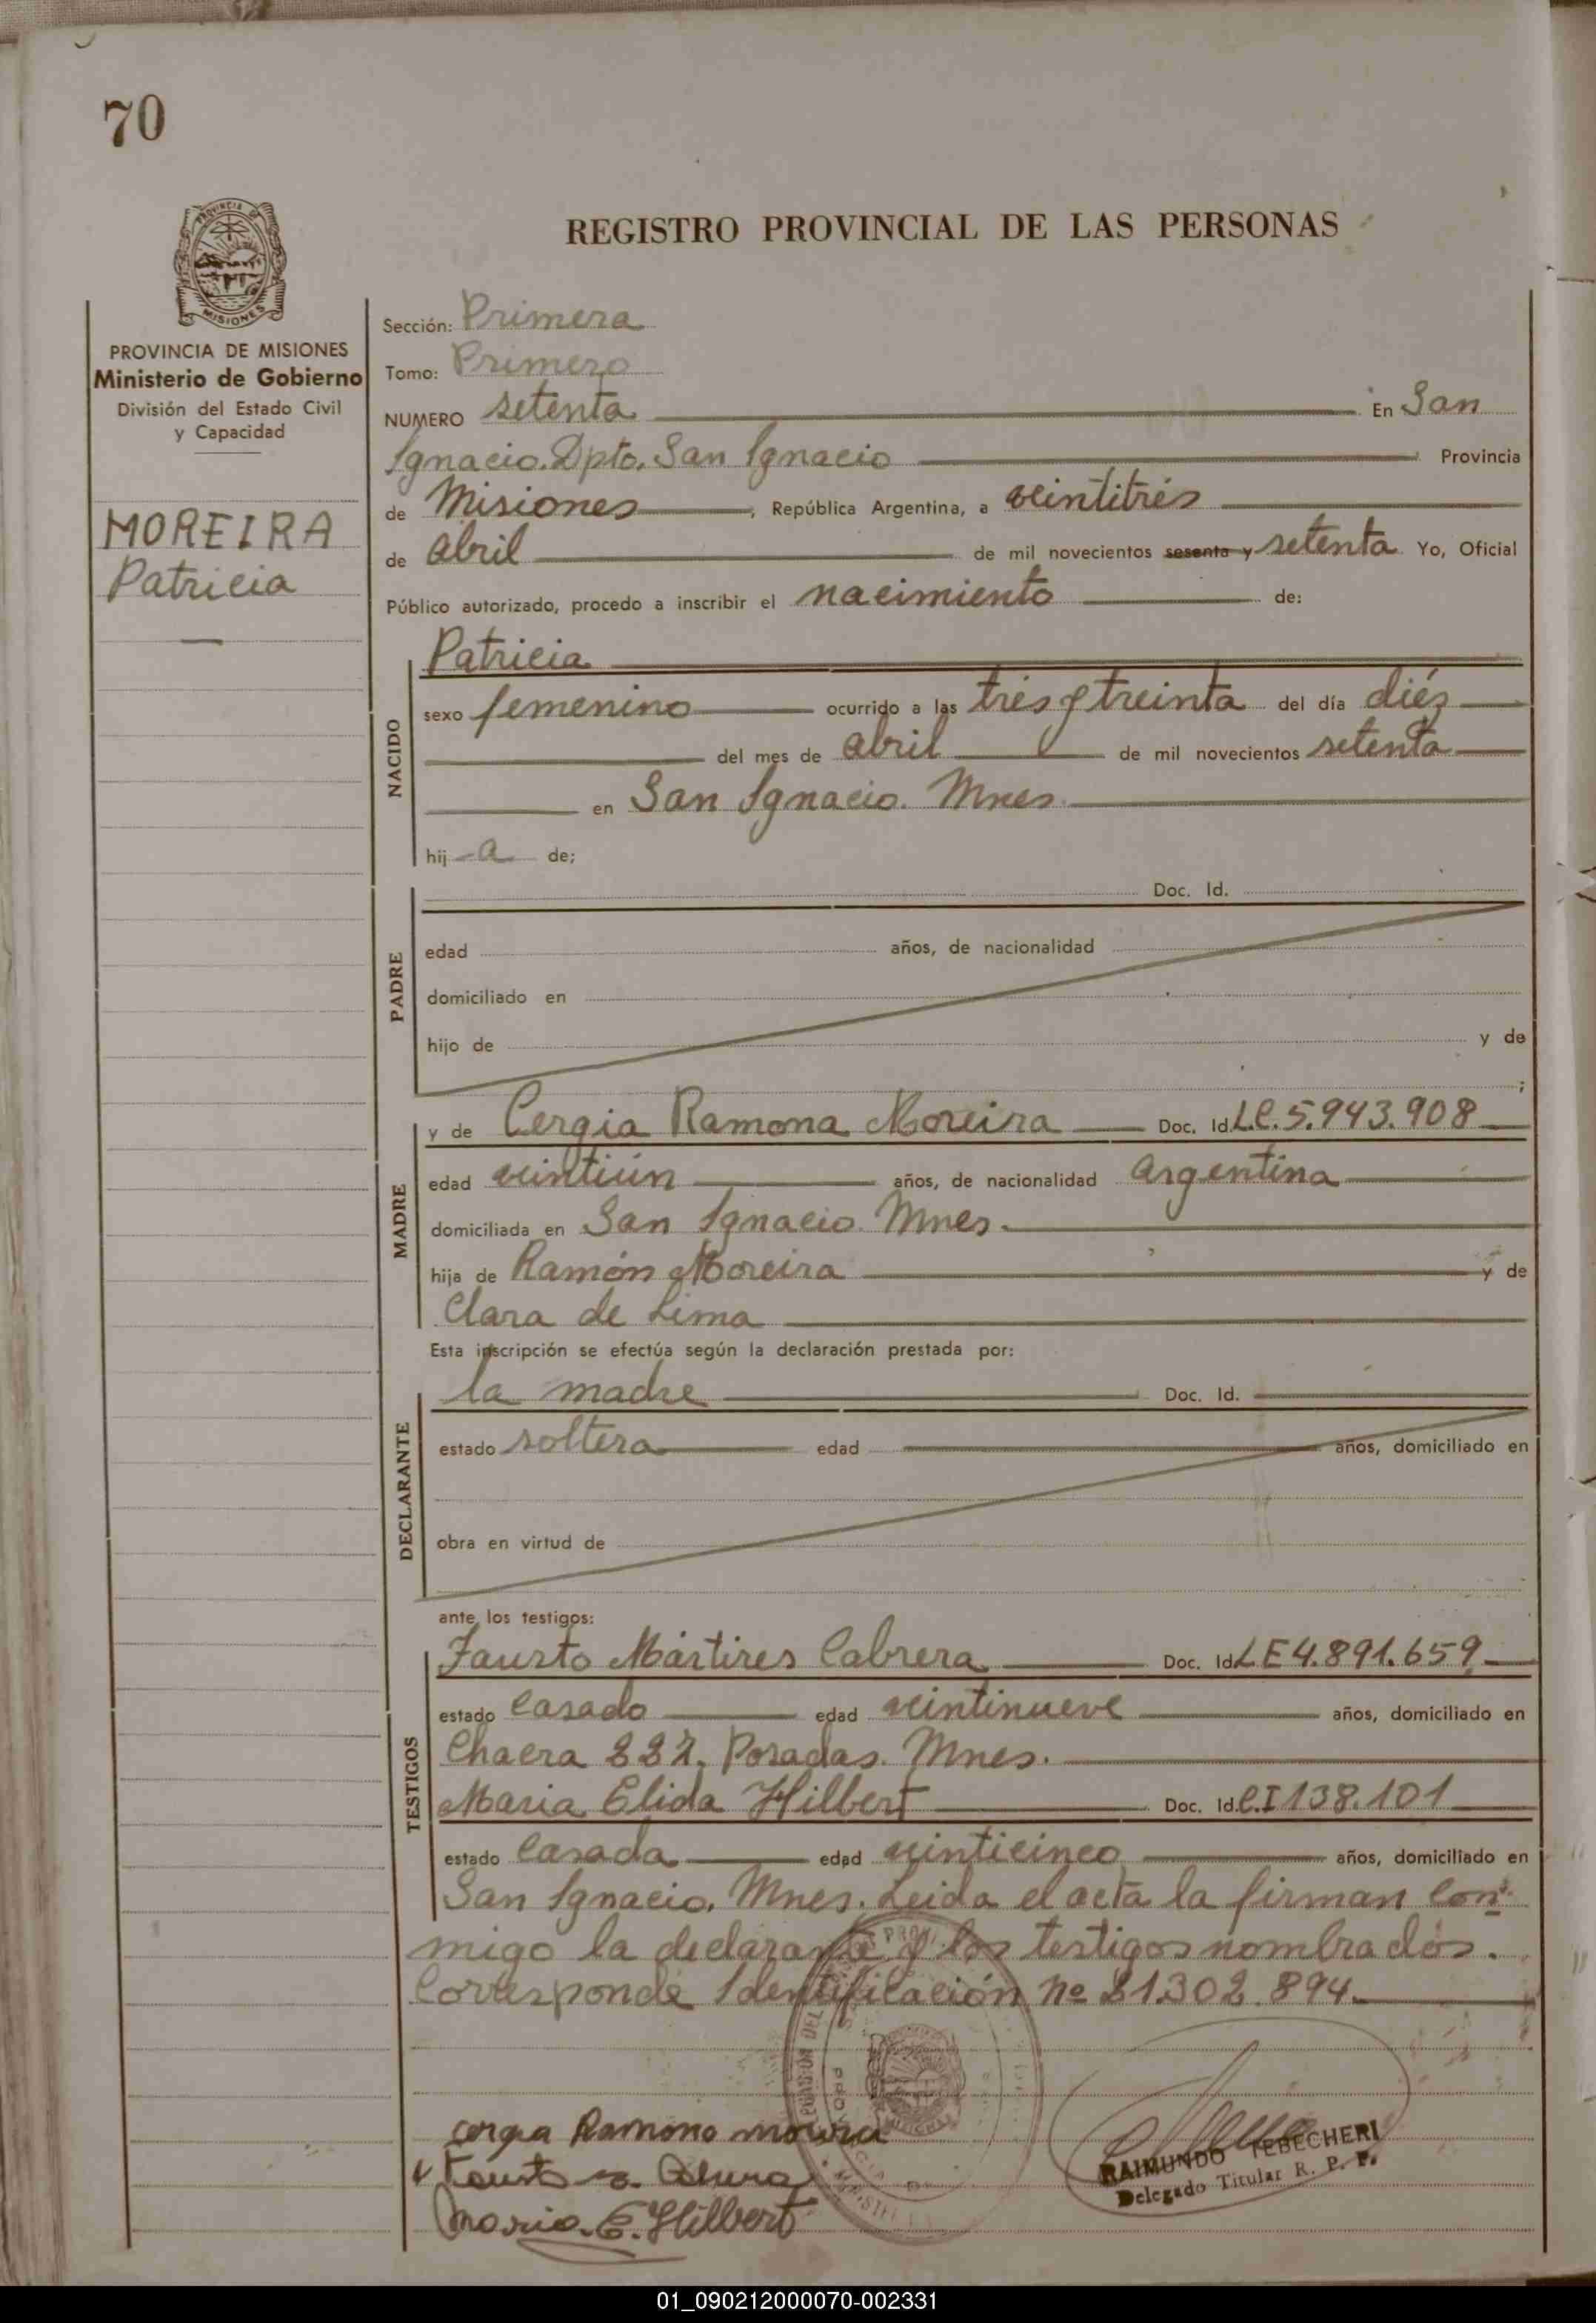 70
REGISTRO PROVINCIAL DE LAS PERSONAS
PROVINCIA DE
MISIONES
PROVINCIA DE MISIONES
Ministerio de Gobierno
División del Estado Civil
y Capacidad
MOREIRA
Patricia
Sección: Primera
Tomo: Primero
NUMERO setenta En San
Ignacio. Dpto. San Ignacio Provincia
de Misiones, República Argentina, a veintitrés
de abril de mil novecientos sesenta y setenta Yo, Oficial
Público autorizado, procedo a inscribir el nacimiento de:
NACIDO
Patricia
sexo femenino ocurrido a las tres y treinta del día diéz
del mes de abril de mil novecientos setenta
en San Ignacio. Mnes.
hij-a de;
PADRE
Doc. Id.
edad años, de nacionalidad
domiciliado en
hijo de y de
;
MADRE
y de Cergia Ramona Moreira Doc. Id. L.C. 5.943.908
edad veintiún años, de nacionalidad argentina
domiciliada en San Ignacio. Mnes.
hija de Ramón Moreira y de
Clara de Lima
Esta inscripción se efectúa según la declaración prestada por:
DECLARANTE
la madre Doc. Id.
estado soltera edad años, domiciliado en
obra en virtud de
ante los testigos:
TESTIGOS
Fausto Mártires Cabrera Doc. Id. LE 4.891.659
estado casado edad veintinueve años, domiciliado en
Chacra Posadas. Mnes.
Maria Elida Hilbert Doc. Id. C.I 138.101
estado casada edad veinticinco años, domiciliado en
San Ignacio. Mnes. Leida el acta la firman con-
migo la declarante y los testigos nombrados.
Corresponde Identificación Nº 21.302.894.
Cergia Ramona Moreira
Maria. E. Hilbert
RAIMUNDO TEBECHERI
Delegado Titular R. P. P.
01_090212000070-002331